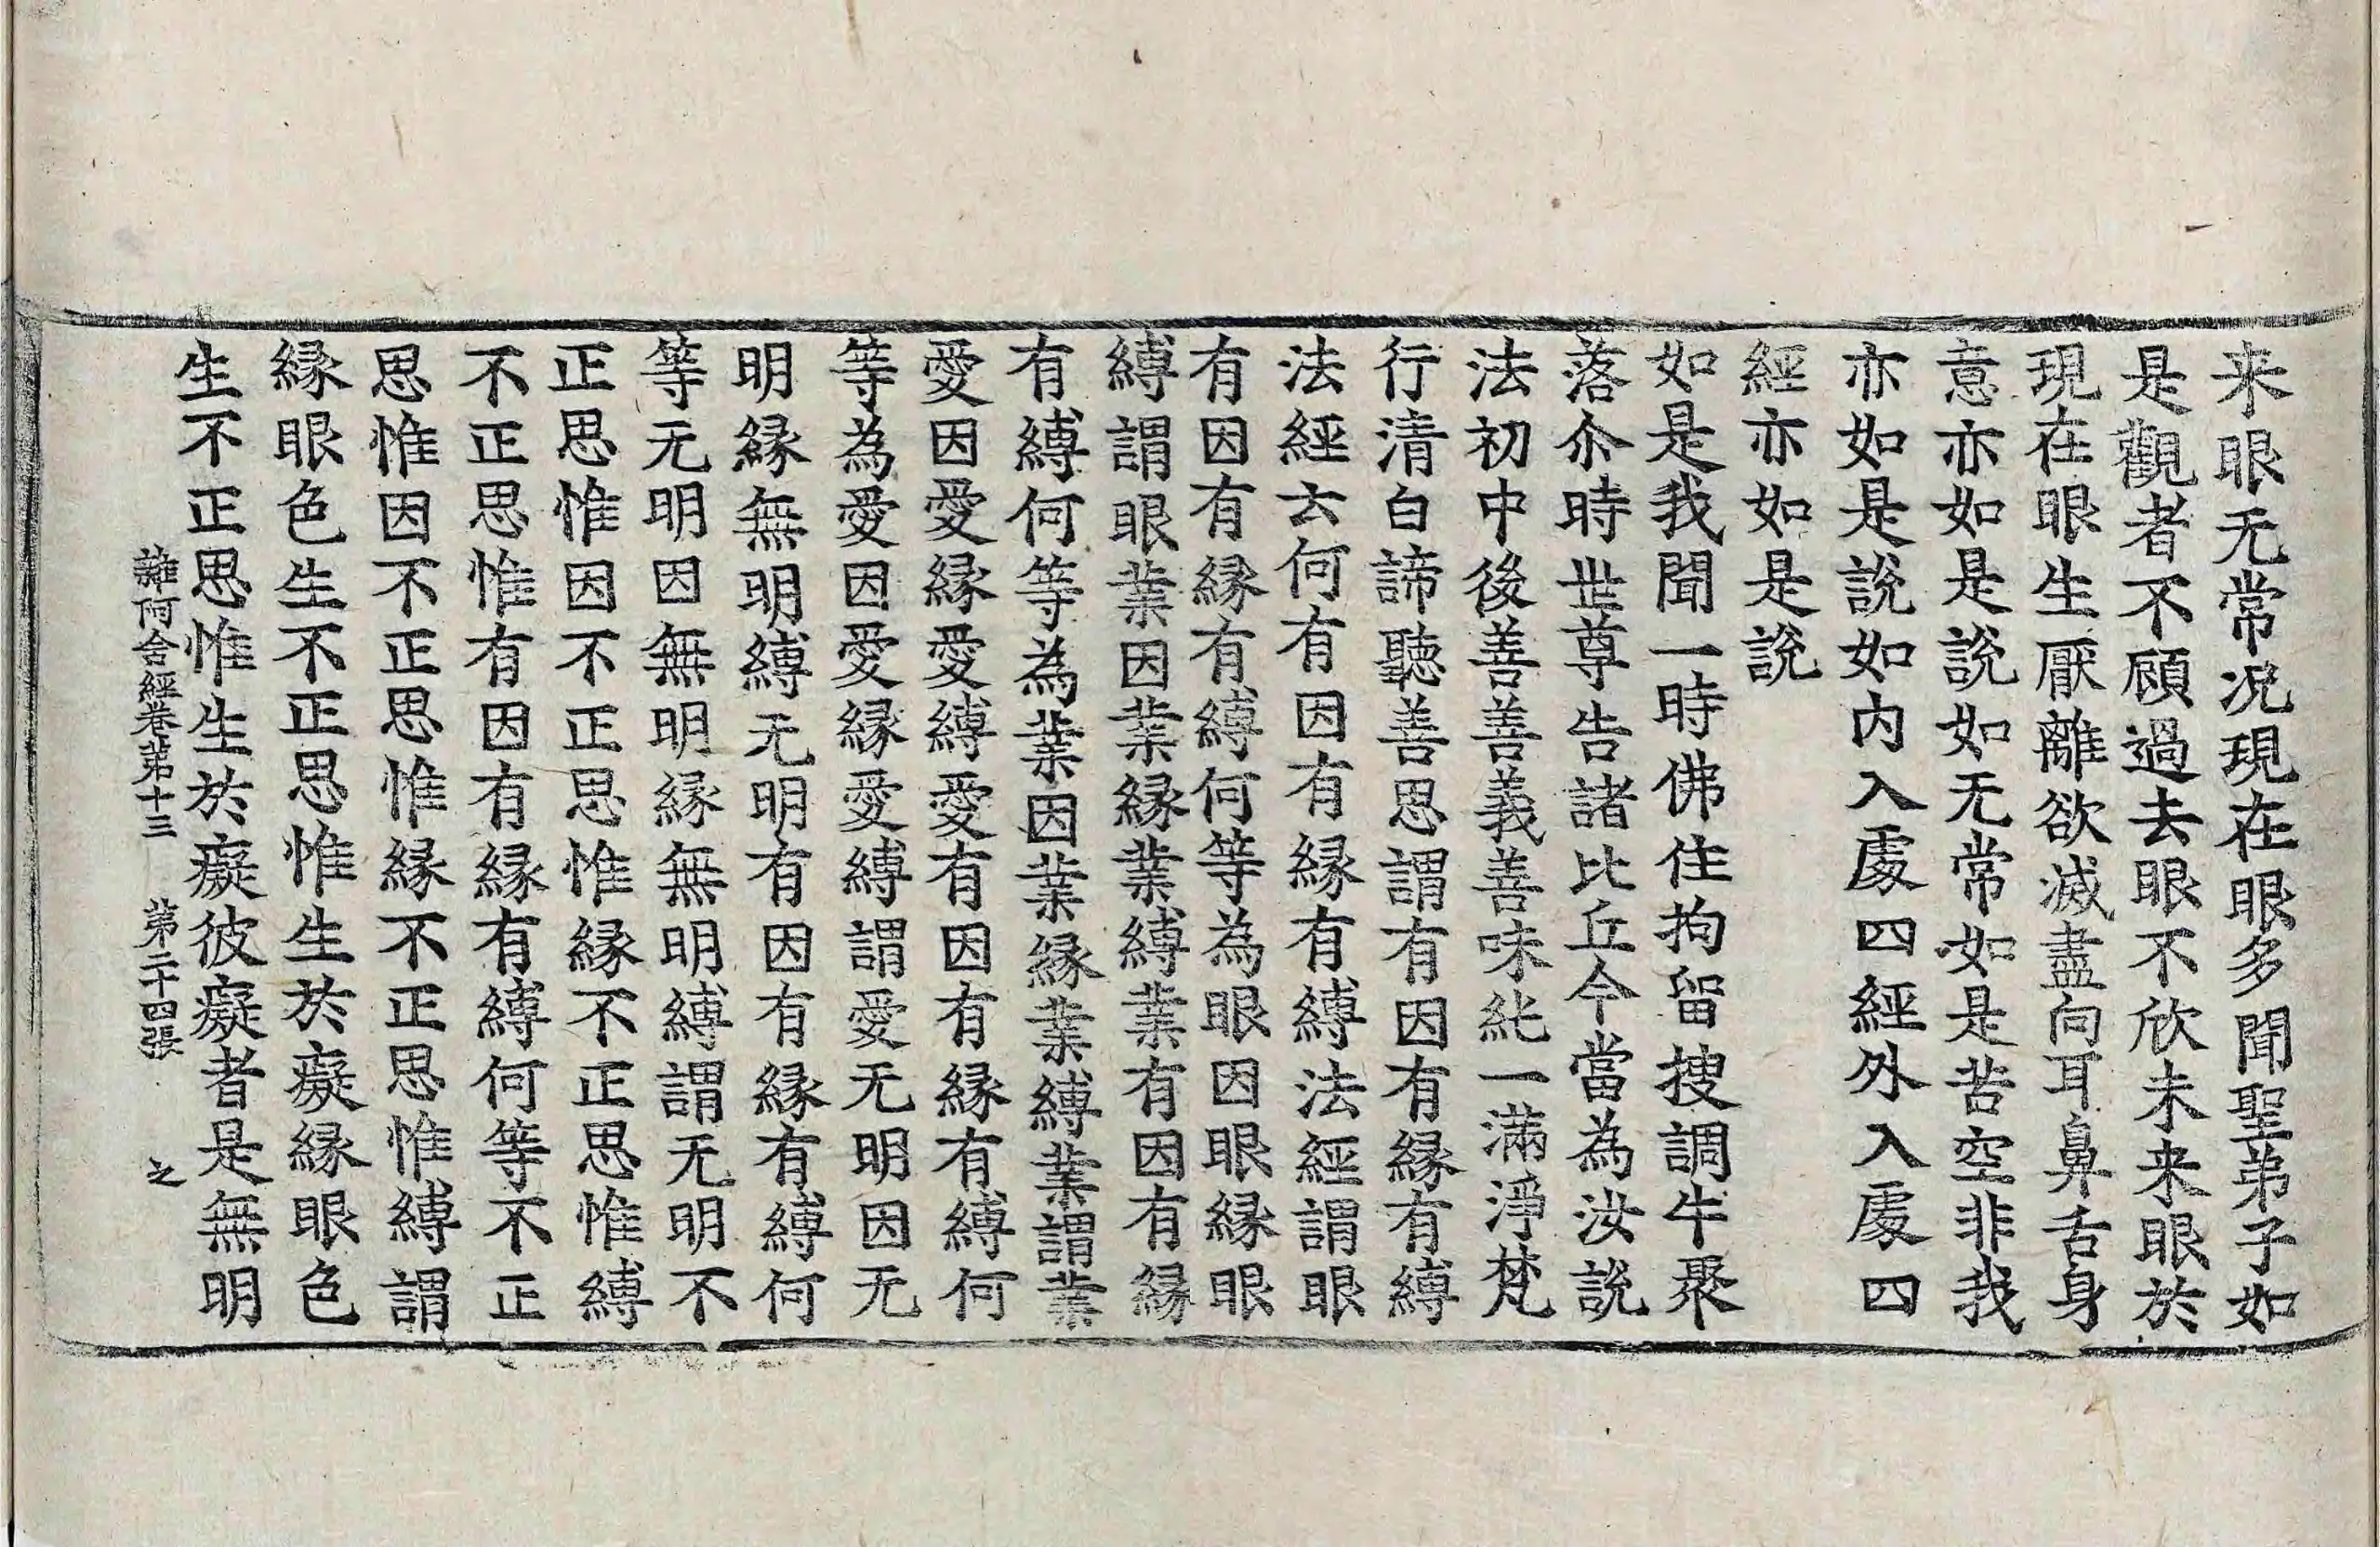 来眼无常况現在眼多聞聖弟子如
是觀者不顧過去眼不欣未来眼於
現在眼生厭離欲滅盡向耳鼻舌身
意亦如是說如无常如是苦空非我
亦如是說如内入處四經外入處四
經亦如是說
如是我聞一時佛住拘留搜調牛聚
落尒時世尊告諸比丘今當為汝說
法初中後善善義善味純一滿淨梵
行清白諦聽善思謂有因有縁有縛
法經云何有因有縁有縛法經謂眼
有因有縁有縛何等為眼因眼縁眼
縛謂眼業因業縁業縛業有因有縁
有縛何等為業因業縁業縛業謂業
愛因愛縁愛縛愛有因有縁有縛何
等為愛因愛縁愛縛謂愛无明因无
明縁無明縛无明有因有縁有縛何
等无明因無明縁無明縛謂无明不
正思惟因不正思惟縁不正思惟縛
不正思惟有因有縁有縛何等不正
思惟因不正思惟縁不正思惟縛謂
縁眼色生不正思惟生於癡縁眼色
生不正思惟生於癡彼癡者是無明
雜阿含經卷第十三　第二十四張　之